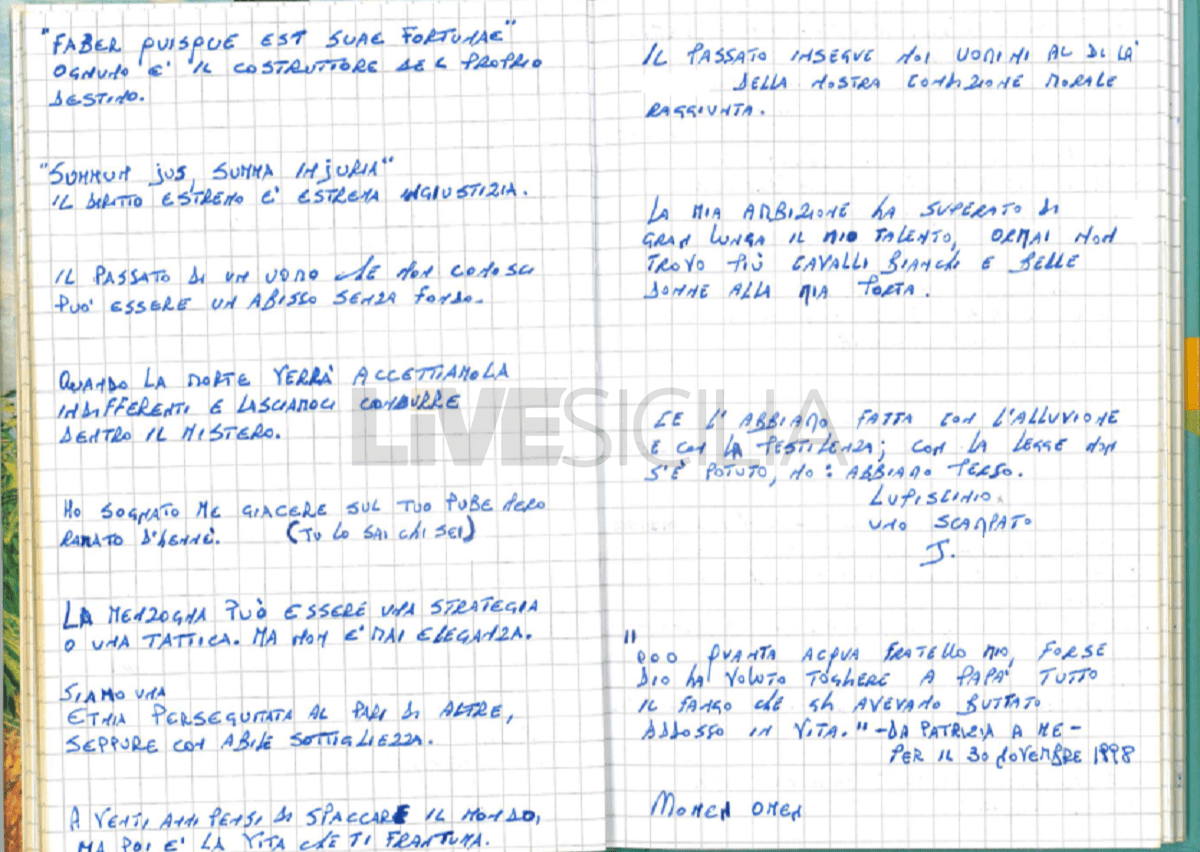 "FABER QUISQUE EST SUAE FORTUNAE"
OGNUNO E' IL COSTRUTTORE DEL PROPRIO
DESTINO.
"SUMMUM jUS, SUMMA INjURIA"
IL DIRITTO ESTREMO E' ESTREMA INGIUSTIZIA.
IL PASSATO DI UN UOMO CHE NON CONOSCI
PUO' ESSERE UN ABISSO SENZA FONDO.
QUANDO LA MORTE VERRA' ACCETTIAMOLA
INDIFFERENTI E LASCIAMOCI CONDURRE
DENTRO IL MISTERO.
HO SOGNATO ME GIACERE SUL TUO PUBE NERO
RAMATO D'HENNÈ. (TU LO SAI CHI SEI)
LA MENZOGNA PUÒ ESSERE UNA STRATEGIA
O UNA TATTICA. MA NON E' MAI ELEGANZA.
SIAMO UNA
ETNIA PERSEGUITATA AL PARI DI ALTRE,
SEPPURE CON ABILE SOTTIGLIEZZA.
A VENTI ANNI PENSI DI SPACCARE IL MONDO,
MA POI E' LA VITA CHE TI FRANTUMA.
IL PASSATO INSEGUE NOI UOMINI AL DI LA'
DELLA NOSTRA CONDIZIONE MORALE
RAGGIUNTA.
LA MIA AMBIZIONE HA SUPERATO DI
GRAN LUNGA IL MIO TALENTO, ORMAI NON
TROVO PIÙ CAVALLI BIANCHI E BELLE
DONNE ALLA MIA PORTA.
CE L'ABBIAMO FATTA CON L'ALLUVIONE
E CON LA PESTILENZA; CON LA LEGGE NON
S'È POTUTO, NO: ABBIAMO PERSO.
LUPISCINIO
UNO SCAMPATO
J.
"
QUANTA ACQUA FRATELLO MIO, FORSE
DIO HA VOLUTO TOGLIERE A PAPA' TUTTO
IL FANGO CHE GLI AVEVANO BUTTATO
ADDOSSO IN VITA." -DA PATRIZIA A ME-
PER IL 30 NOVEMBRE 1998
NOMEN OMEN
LIVESICILIA